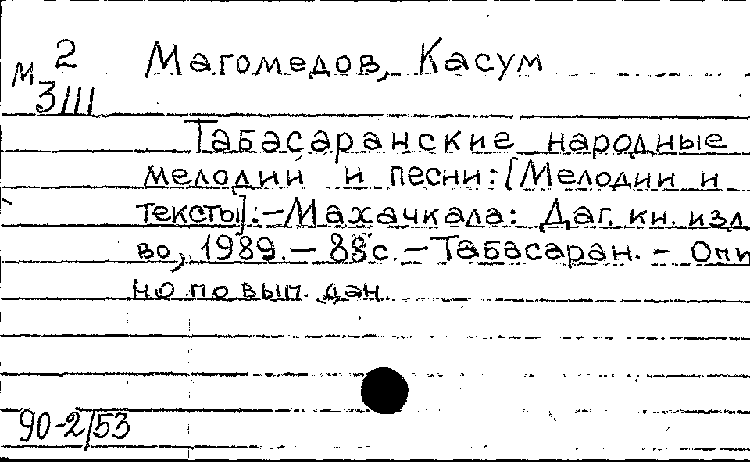 М 2
3111
Магомедов, Касум
Табасаранские народные
мелодий и песни: [Мелодии и
тексты]. - Махачкала: Даг. кн. изд
во, 1989. - 88 с. - Табасаран. - Опи
но по вып. дан
90-2/53